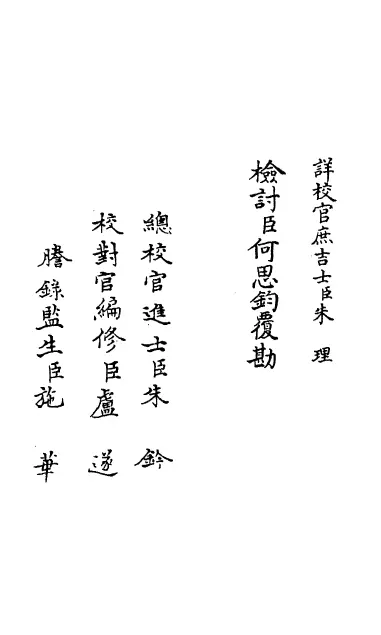 詳校官庶吉士臣朱理
檢討臣何思鈞覆勘
總校官進士臣朱鈐
校對官編修臣盧遂
謄錄監生臣施華